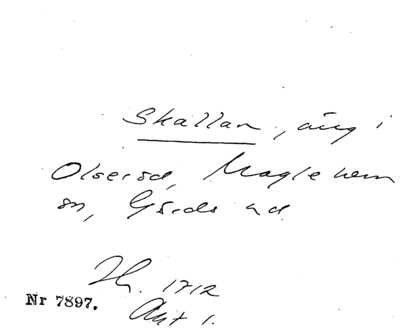 Skallan, äng i
Olseröd, Maglehem
sn, Gärds hd.
Lh. 1712
Akt 1.
Nr 7897.